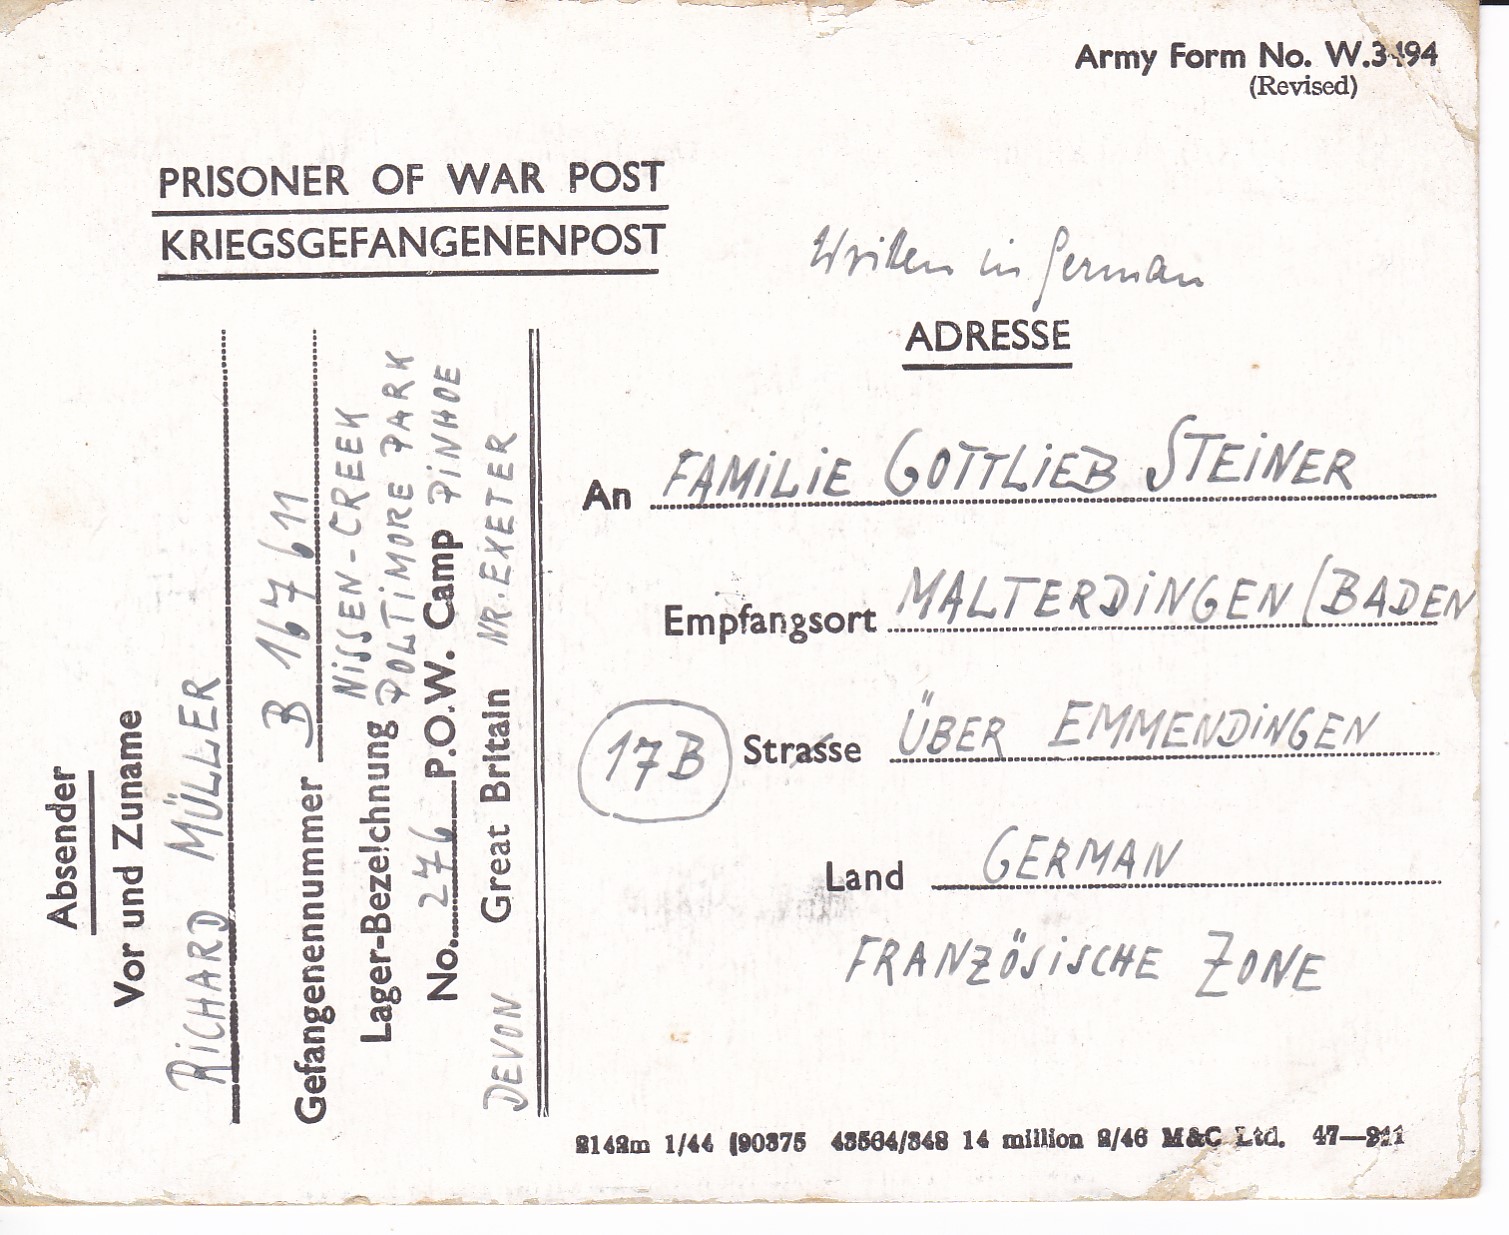 Army Form No. W.3494
(Revised)
PRISONER OF WAR POST
KRIEGSGEFANGENENPOST
Written in German
ADRESSE
An FAMILIE GOTTLIEB STEINER
Empfangsort MALTERDINGEN (BADEN
17B
Strasse ÜBER EMMENDINGEN
Land GERMAN
FRANZÖSISCHE ZONE
Absender
Vor und Zuname
RICHARD MÜLLER
Gefangenennummer B 167611
NISSEN-CREEK
Lager-Bezeichnung POLTIMORE PARK
No. 276 P.O.W. Camp PINHOE
DEVON Great Britain NR. EXETER
2142m 1/44 (90375 43564/348 14 million 2/46 M&C Ltd. 47—211